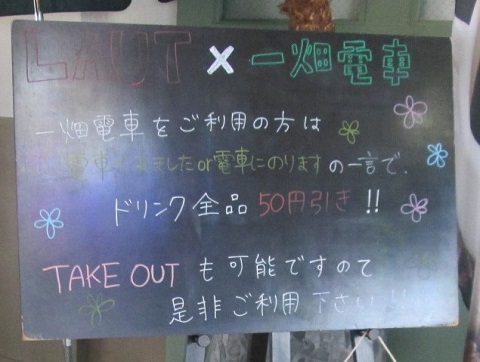 LAUT × 一畑電車
一畑電車をご利用の方は
電車できました or 電車にのります の一言で、
ドリンク全品 50円引き !!
TAKE OUT も可能ですので
是非ご利用下さい !!